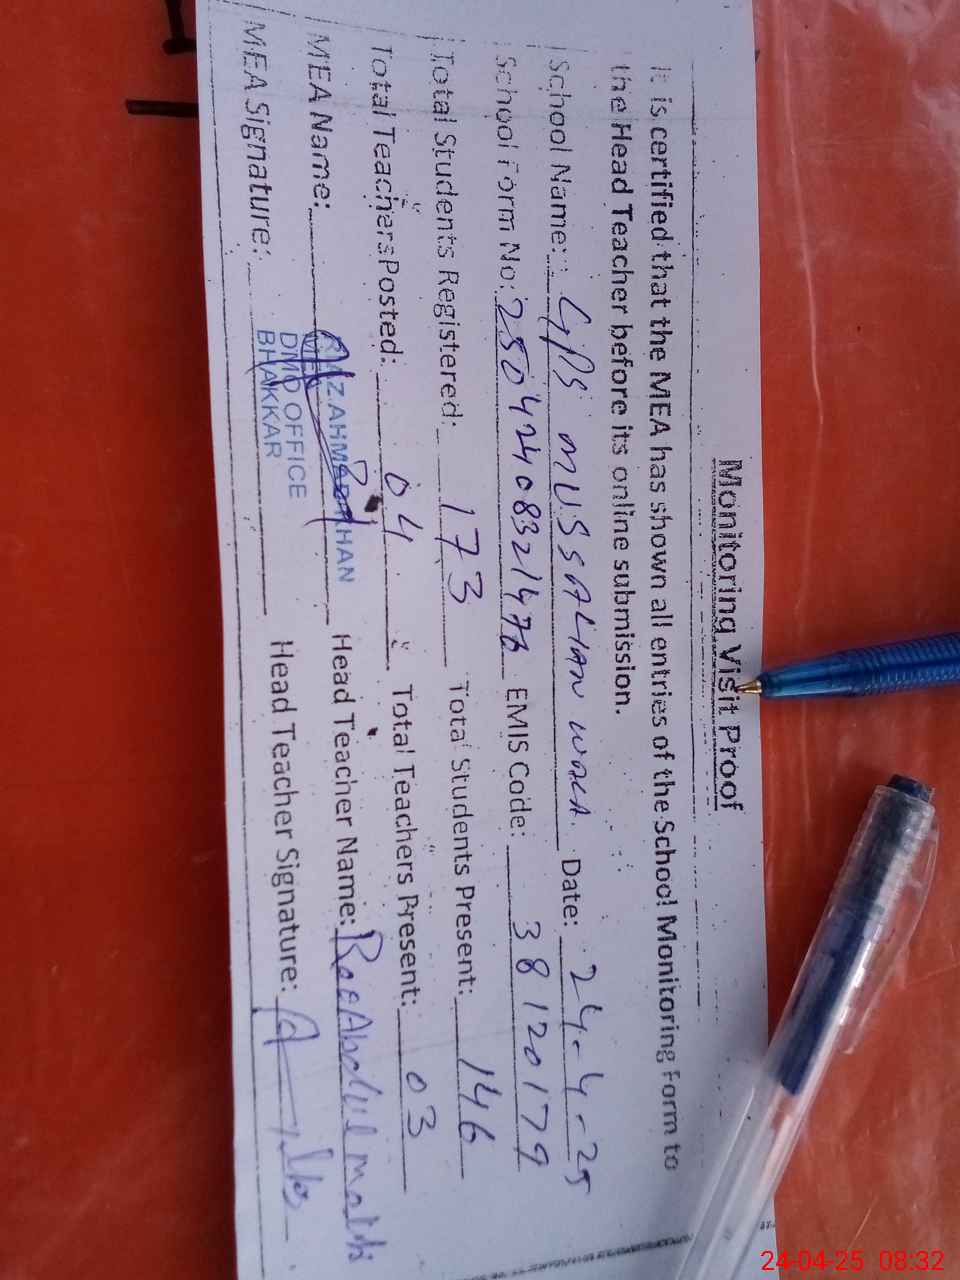 Monitoring Visit Proof
It is certified that the MEA has shown all entries of the School Monitoring Form to
the Head Teacher before its online submission.
School Name: GPS MUSSALIAN WALA. Date: 24-4-25
School Form No: EMIS Code: 38120179
Total Students Registered: 173 Total Students Present: 146
Total Teachers Posted: 04 Total Teachers Present: 03
MEA Name: Head Teacher Name: Abdul
MEA Signature: Head Teacher Signature:
DMO OFFICE
BHAKKAR
24-04-25 08:32